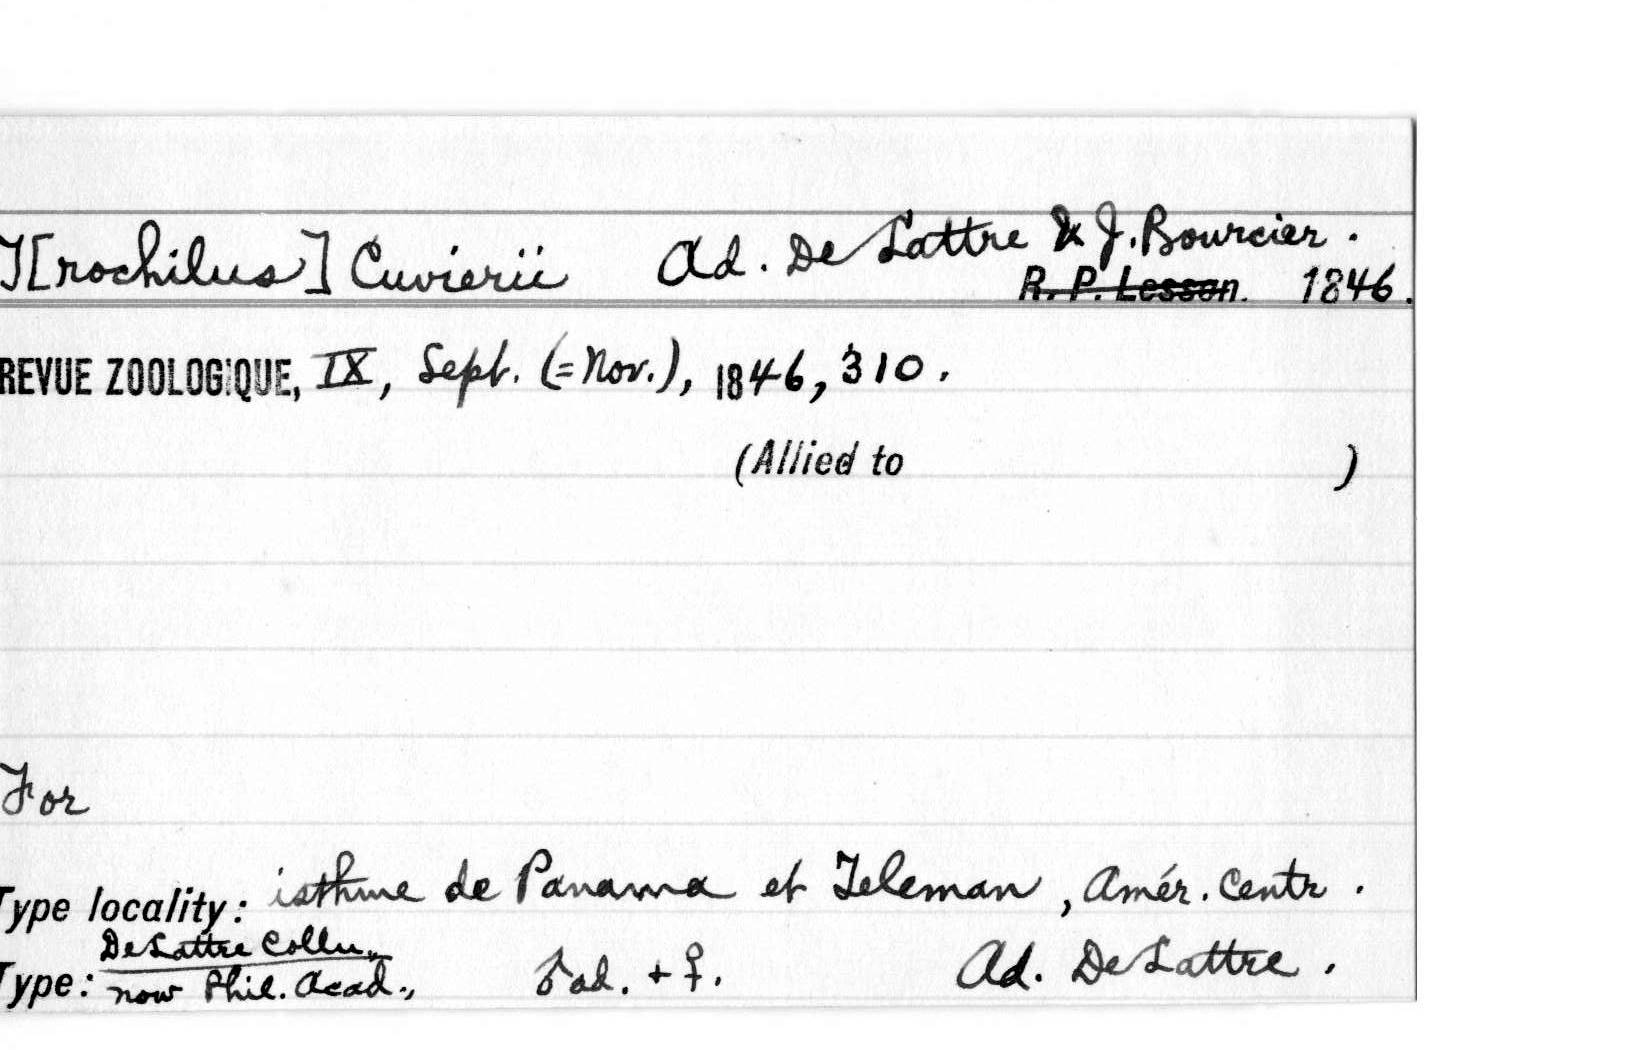 T[rochilus] Cuvierii Ad. De Lattre & J. Bourcier.
R. P. Lesson. 1846.
REVUE ZOOLOGIQUE, IX, Sept. (=Nov.), 1846, 310.
(Allied to )
For
Type locality: isthme de Panama et Teleman, Amér. Centr.
De Lattre Colln.,
Type: now Phil. Acad., ♂ ad. + ♀. Ad. De Lattre.